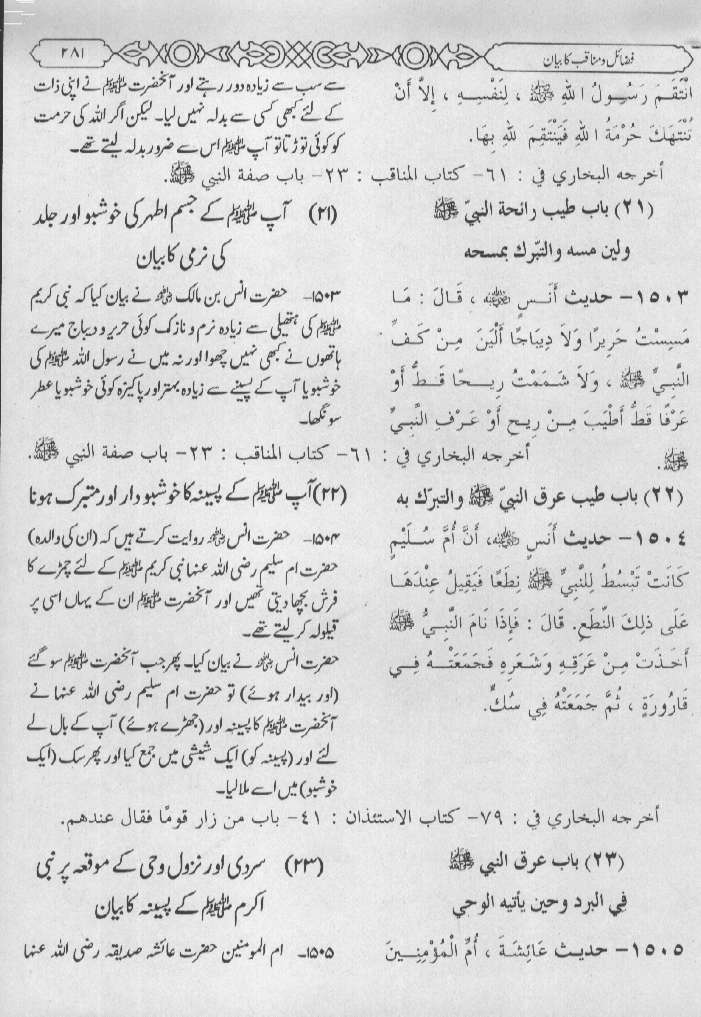 فضائل ومناقب کا بیان
۲۸۱
انْتَقَمَ رَسُولُ اللهِ ﷺ ، لِنَفْسِهِ ، إِلاَّ أَنْ
تُنْتَهَكَ حُرْمَةُ اللهِ فَيَنْتَقِمَ لِلهِ بِهَا.
سے سب سے زیادہ دور رہتے اور آنحضرت ﷺ نے اپنی ذات
کے لئے کبھی کسی سے بدلہ نہیں لیا۔ لیکن اگر اللہ کی حرمت
کو کوئی توڑتا تو آپ ﷺ اس سے ضرور بدلہ لیتے تھے۔
أخرجه البخاري في : ٦١- كتاب المناقب : ٢٣- باب صفة النبي ﷺ.
(٢١) باب طيب رائحة النبيّ ﷺ
ولين مسه والتبّرك بمسحه
(۲۱) آپ ﷺ کے جسم اطہر کی خوشبو اور جلد
کی نرمی کا بیان
١٥٠٣- حديث أَنَسٍ ؓ ، قَالَ : مَا
مَسِسْتُ حَرِيرًا وَلاَ دِيبَاجًا أَلْيَنَ مِنْ كَفِّ
النَّبِيِّ ﷺ ، وَلاَ شَمَمْتُ رِيحًا قَطُّ أَوْ
عَرْفًا قَطُّ أَطْيَبَ مِنْ رِيحِ أَوْ عَرْفِ النَّبِيِّ
ﷺ.
۱۵۰۳۔ حضرت انس بن مالک ؓ نے بیان کیا کہ نبی کریم
ﷺ کی ہتھیلی سے زیادہ نرم و نازک کوئی حریر و دیباج میرے
ہاتھوں نے کبھی نہیں چھوا اور نہ میں نے رسول اللہ ﷺ کی
خوشبو یا آپ کے پسینے سے زیادہ بہتر اور پاکیزہ کوئی خوشبو یا عطر
سونگھا۔
أخرجه البخاري في : ٦١- كتاب المناقب : ٢٣- باب صفة النبي ﷺ.
(٢٢) باب طيب عرق النبيّ ﷺ والتبرّك به
(۲۲) آپ ﷺ کے پسینہ کا خوشبودار اور متبرک ہونا
١٥٠٤- حديث أَنَسٍ ؓ، أَنَّ أُمَّ سُلَيْمٍ
كَانَتْ تَبْسُطُ لِلنَّبِيِّ ﷺ نِطَعًا فَيَقِيلُ عِنْدَهَا
عَلَى ذلِكَ النِّطَعِ. قَالَ : فَإِذَا نَامَ النَّبِيُّ ﷺ
أَخَذَتْ مِنْ عَرَقِهِ وَشَعَرِهِ فَجَمَعَتْهُ فِي
قَارُورَةٍ ، ثُمَّ جَمَعَتْهُ فِي سُكٍّ.
۱۵۰۴۔ حضرت انس ؓ روایت کرتے ہیں کہ (ان کی والدہ)
حضرت ام سلیم رضی اللہ عنہا نبی کریم ﷺ کے لئے چمڑے کا
فرش بچھا دیتی تھیں اور آنحضرت ﷺ ان کے یہاں اسی پر
قیلولہ کر لیتے تھے۔
حضرت انس ؓ نے بیان کیا۔ پھر جب آنحضرت ﷺ سو گئے
(اور بیدار ہوئے) تو حضرت ام سلیم رضی اللہ عنہا نے
آنحضرت ﷺ کا پسینہ اور (جھڑے ہوئے) آپ کے بال لے
لئے اور (پسینہ کو) ایک شیشی میں جمع کیا اور پھر سک (ایک
خوشبو) میں اسے ملا لیا۔
أخرجه البخاري في : ٧٩- كتاب الاستئذان : ٤١- باب من زار قومًا فقال عندهم.
(٢٣) باب عرق النبي ﷺ
فِي البرد وحين يأتيه الوحي
(۲۳) سردی اور نزول وحی کے موقعہ پر نبی
اکرم ﷺ کے پسینہ کا بیان
١٥٠٥- حديث عَائِشَةَ ، أُمِّ الْمُؤْمِنِينَ
۱۵۰۵۔ ام المومنین حضرت عائشہ صدیقہ رضی اللہ عنہا